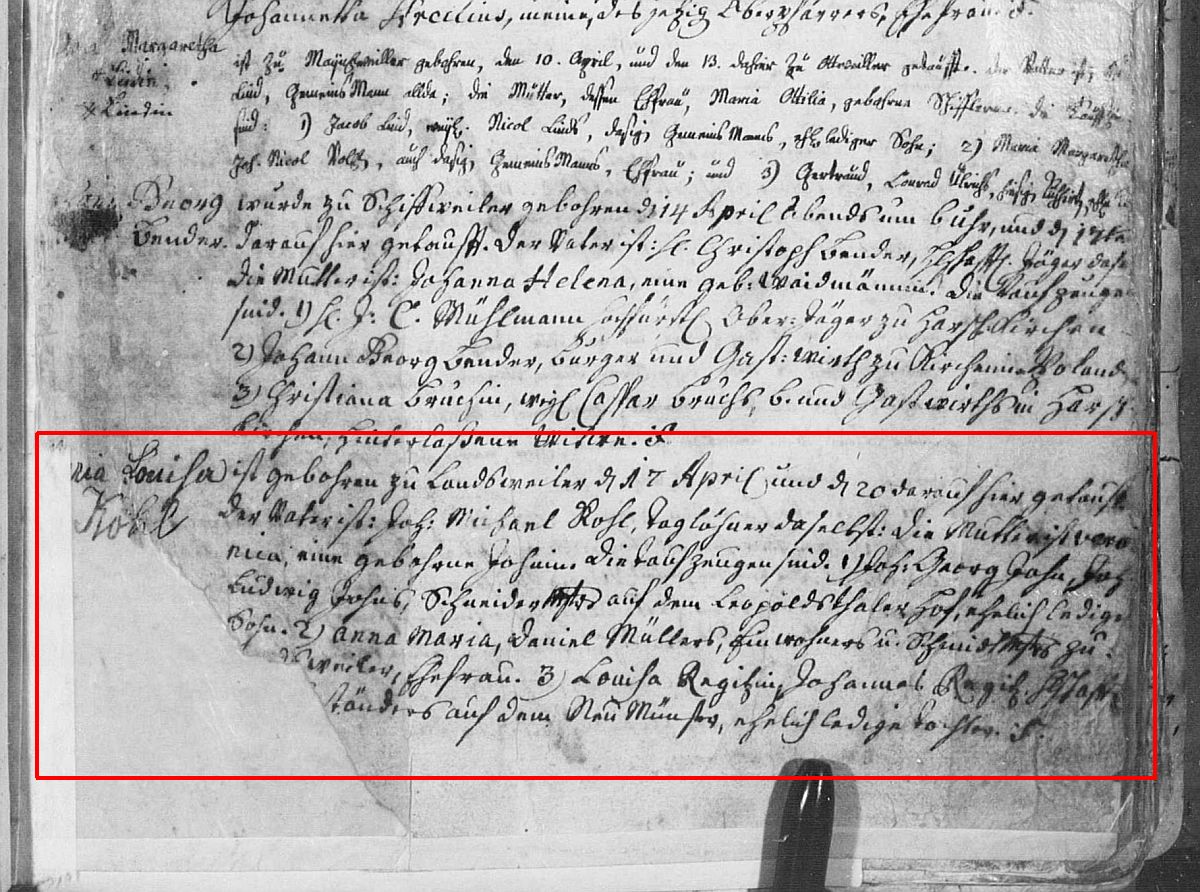 Johannetta meine, des jetzig Oberpfarrers, Ehefrau. F.
Margaretha ist zu Maynzweiller gebohren, den 10. April, und den 13. dahier zu Ottweiller getaufft. der Vatter ist,
Lindin Lind, Gemeins Mann allda; die Mutter, dessen Ehefrau, Maria Ottilia, gebohrne Schifflerin. die
sind: 1) Jacob Lind, weyl. Nicol Linds, dasig. Gemeins Manns, ehl. lediger Sohn; 2) Maria Margaretha
Joh. Nicol Voltz, auch dasig. Gemeins Manns, Ehefrau; und 3) Gertraud, Conrad Ulrichs,
Georg wurde zu Schiffweiler gebohren d. 14 April Abends um 6 Uhr, und d. 17te
Bender. darauf hier getaufft. der Vater ist: H. Christoph Bender, Jäger
die Mutter ist: Johanna Helena, eine geb: Waidmännin. Die Taufzeugen
sind. 1) H. J. C. Mühlmann Hochfürstl Ober-Jäger zu Harskirchen
2) Johann Georg Bender, Burger und Gast-Wirth zu Kirchheim Poland,
3) Christiana Bruchin, weyl Casspar Bruchs, B. und Gastwirths in Hars
kirchen, hinterlaßene Witwe. F.
Louisa ist gebohren zu Landsweiler d. 17 April und d. 20 darauf hier getauft
Kohl der Vater ist: Joh: Michael Kohl, Taglöhner daselbst: die Mutter ist Vero
nica, eine gebohrne Johnin. die Taufzeugen sind. 1) Joh: Georg John, Joh
Ludwig Johns, Schneider auf dem Leopoldsthaler Hof, ehelich ledige
Sohn. 2) Anna Maria, Daniel Müllers, Einwohners u. Schmidt zu
weiler, Ehefrau. 3) Louisa Regitzin, Johannes Regitz
ständers auf dem Neu Münster, ehelich ledige Tochter. F.